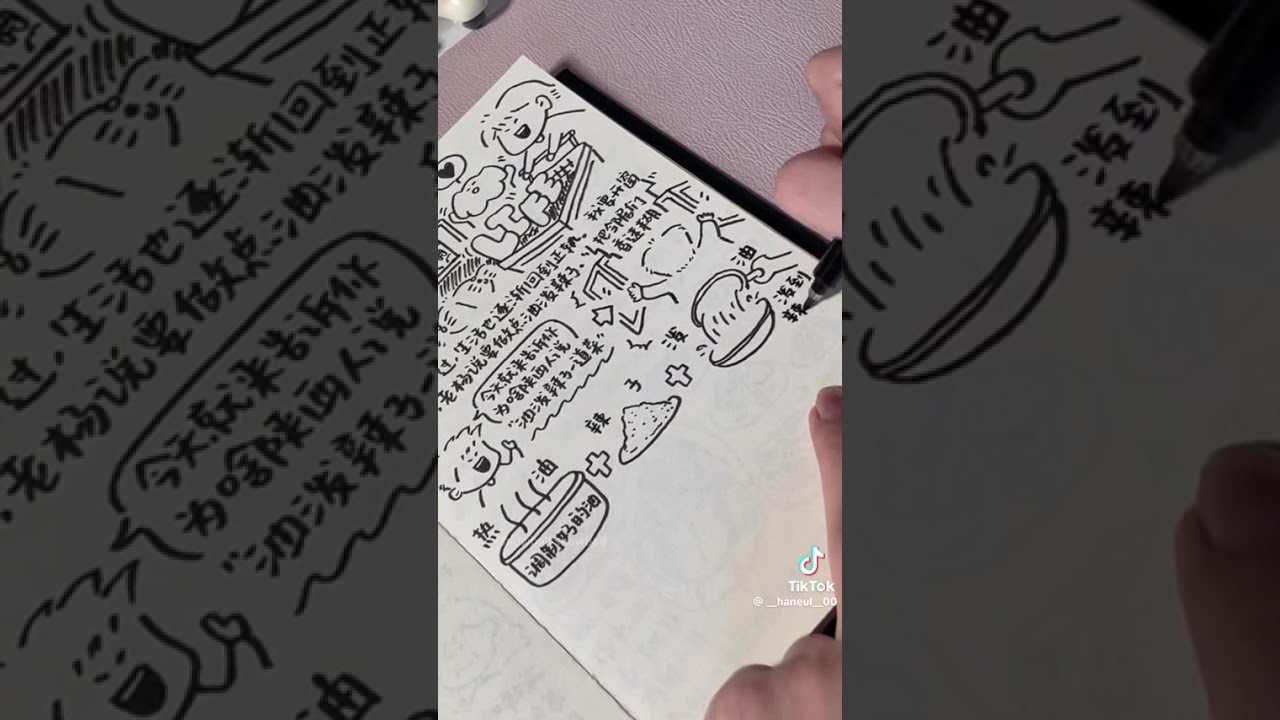 我想开窗
把它们
过,生活也逐渐回到正轨
老杨说要做点油泼辣子
今天就来告诉你
为啥陕西人说
"油泼辣子一道菜"
热油
调制好的油
辣子
泼
油
泼到
辣
TikTok
@__haneul__00